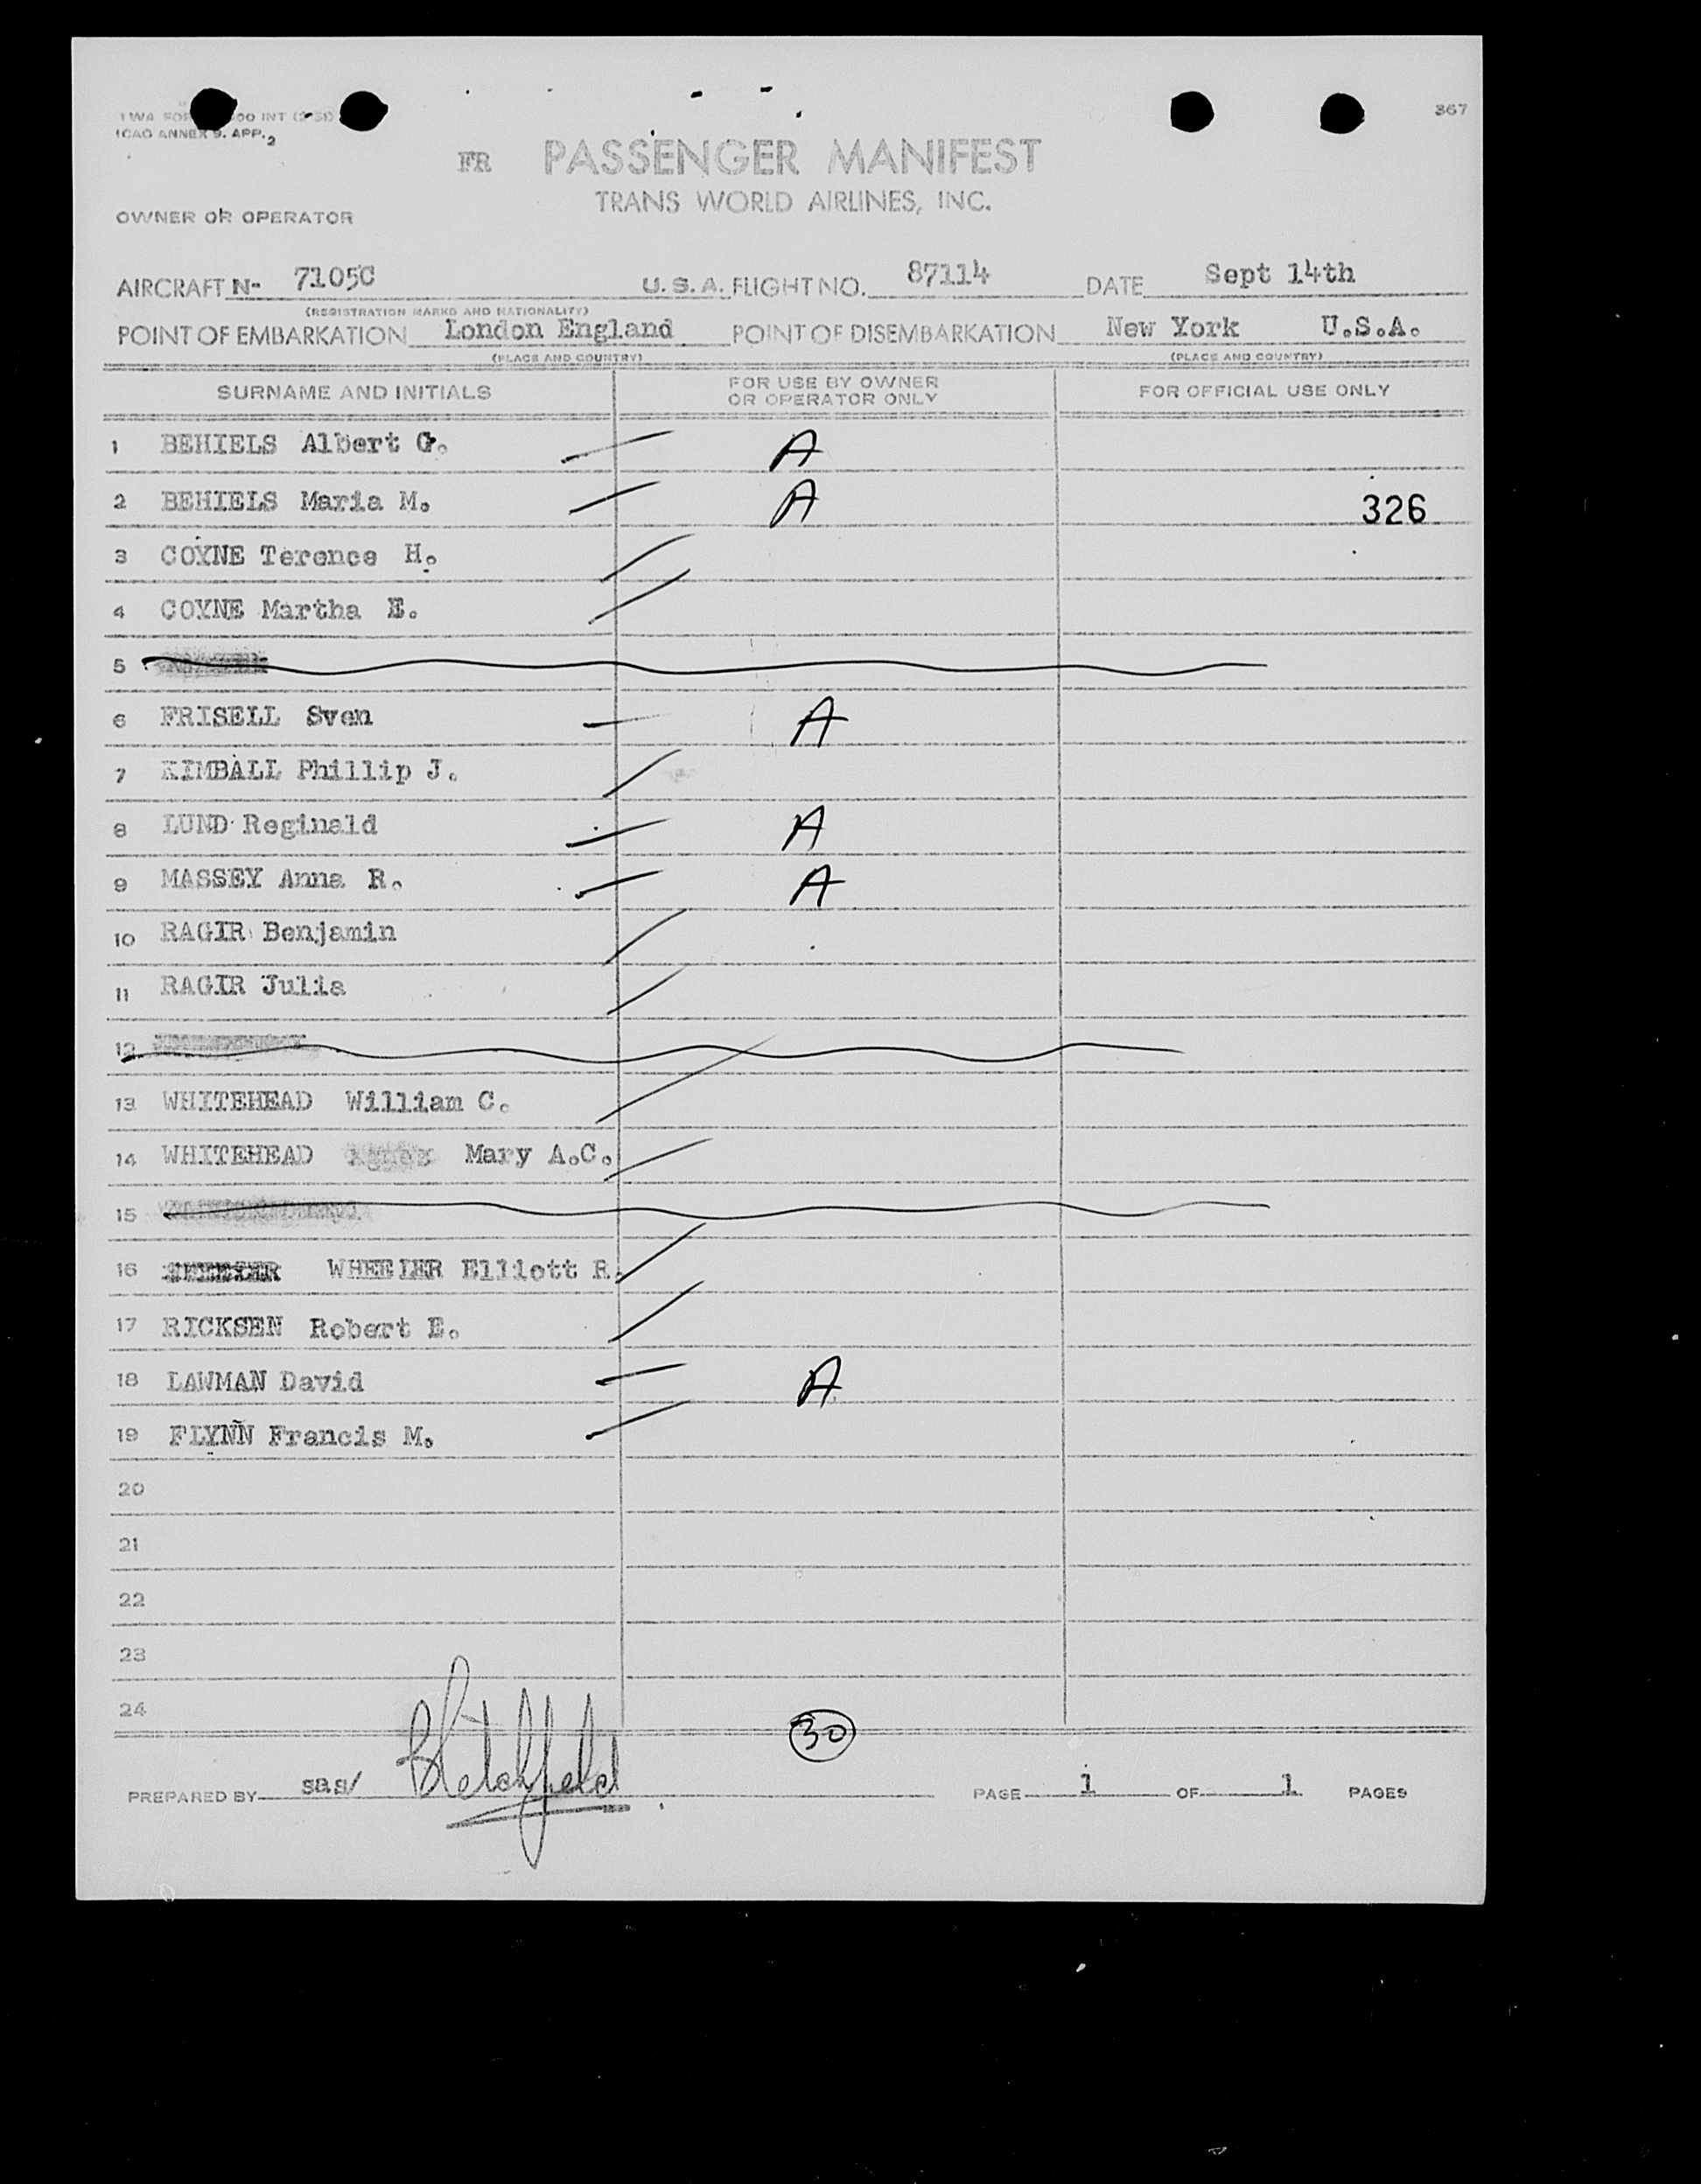 367
INT
ICAO ANNEX 9. APP. 2
FR PASSENGER MANIFEST
TRANS WORLD AIRLINES, INC.
OWNER OR OPERATOR
AIRCRAFT N- 7105C U.S.A. FLIGHT NO. 87114 DATE Sept 14th
(REGISTRATION MARKS AND NATIONALITY)
POINT OF EMBARKATION London England POINT OF DISEMBARKATION New York U.S.A.
(PLACE AND COUNTRY) (PLACE AND COUNTRY)
SURNAME AND INITIALS FOR USE BY OWNER OR OPERATOR ONLY FOR OFFICIAL USE ONLY
1 BEHIELS Albert G. A
2 BEHIELS Maria M. A 326
3 COYNE Terence H.
4 COYNE Martha E.
5
6 FRISELL Sven A
7 KIMBALL Phillip J.
8 LUND Reginald A
9 MASSEY Anna R. A
10 RAGIR Benjamin
11 RAGIR Julia
12
13 WHITEHEAD William C.
14 WHITEHEAD Mary A.C.
15
16 WHEELER Elliott R.
17 RICKSEN Robert E.
18 LAWMAN David A
19 FLYNN Francis M.
20
21
22
23
24
30
PREPARED BY sas/ PAGE 1 OF 1 PAGES